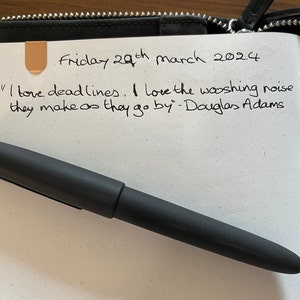 Friday 29th march 2024
"I love deadlines. I love the wooshing noise
they make as they go by"- Douglas Adams